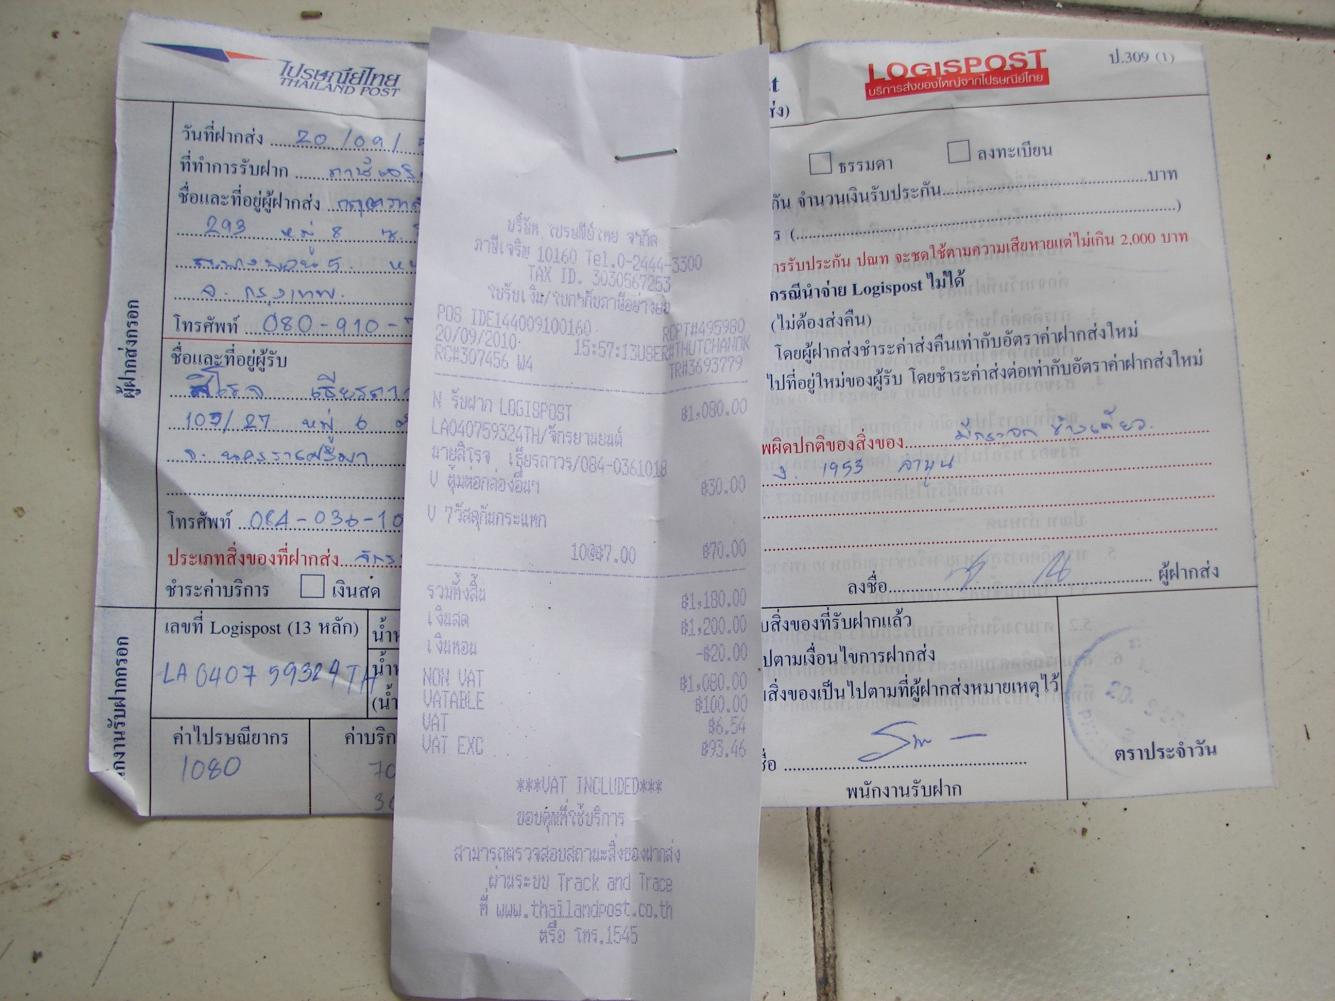 ไปรษณีย์ไทย
THAILAND POST
วันที่ฝากส่ง 20/09/
ที่ทำการรับฝาก ภาษีเจริ
ชื่อและที่อยู่ผู้ฝากส่ง
293 หมู่ 8 ซ.
จ. กรุงเทพ.
โทรศัพท์ 080-910-
ชื่อและที่อยู่ผู้รับ
สิโรจ เธียรถาว
หมู่ 6
จ. นครราชสีมา
โทรศัพท์ 084-036-10
ประเภทสิ่งของที่ฝากส่ง จักร
ชำระค่าบริการ เงินสด
ผู้ฝากส่งกรอก
เลขที่ Logispost (13 หลัก)
LA 0407 59324 TH
ค่าไปรษณียากร
1080
ค่าบริก
70
30
นักงานรับฝากกรอก
บริษัท ไปรษณีย์ไทย จำกัด
ภาษีเจริญ 10160 Tel.0-2444-3300
TAX ID. 3030567253
ใบรับเงิน/ใบกำกับภาษีอย่างย่อ
POS IDE144009100160 RCPT#495980
20/09/2010 15:57:13USER#THUTCHANOK
RC#307456 W4 TR#3693779
N รับฝาก LOGISPOST ฿1,080.00
LA040759324TH/จักรยานยนต์
นายสิโรจ เธียรถาวร/084-0361018
V หุ้มห่อกล่องอื่นๆ ฿30.00
V 7วัสดุกันกระแทก
10@฿7.00 ฿70.00
รวมทั้งสิ้น ฿1,180.00
เงินสด ฿1,200.00
เงินทอน -฿20.00
NON VAT ฿1,080.00
VATABLE ฿100.00
VAT ฿6.54
VAT EXC ฿93.46
***VAT INCLUDED***
ขอบคุณที่ใช้บริการ
สามารถตรวจสอบสถานะสิ่งของฝากส่ง
ผ่านระบบ Track and Trace
ที่ www.thailandpost.co.th
หรือ โทร.1545
LOGISPOST
บริการส่งของใหญ่จากไปรษณีย์ไทย
ป.309 (1)
ธรรมดา ลงทะเบียน
กัน จำนวนเงินรับประกัน บาท
การรับประกัน ปณท จะชดใช้ตามความเสียหายแต่ไม่เกิน 2,000 บาท
กรณีนำจ่าย Logispost ไม่ได้
(ไม่ต้องส่งคืน)
โดยผู้ฝากส่งชำระค่าส่งคืนเท่ากับอัตราค่าฝากส่งใหม่
ไปที่อยู่ใหม่ของผู้รับ โดยชำระค่าส่งต่อเท่ากับอัตราค่าฝากส่งใหม่
พผิดปกติของสิ่งของ มีกระจก ข้างเดียว
1953 ลำพูน
ลงชื่อ ผู้ฝากส่ง
บสิ่งของที่รับฝากแล้ว
ปตามเงื่อนไขการฝากส่ง
สิ่งของเป็นไปตามที่ผู้ฝากส่งหมายเหตุไว้
พนักงานรับฝาก
ตราประจำวัน